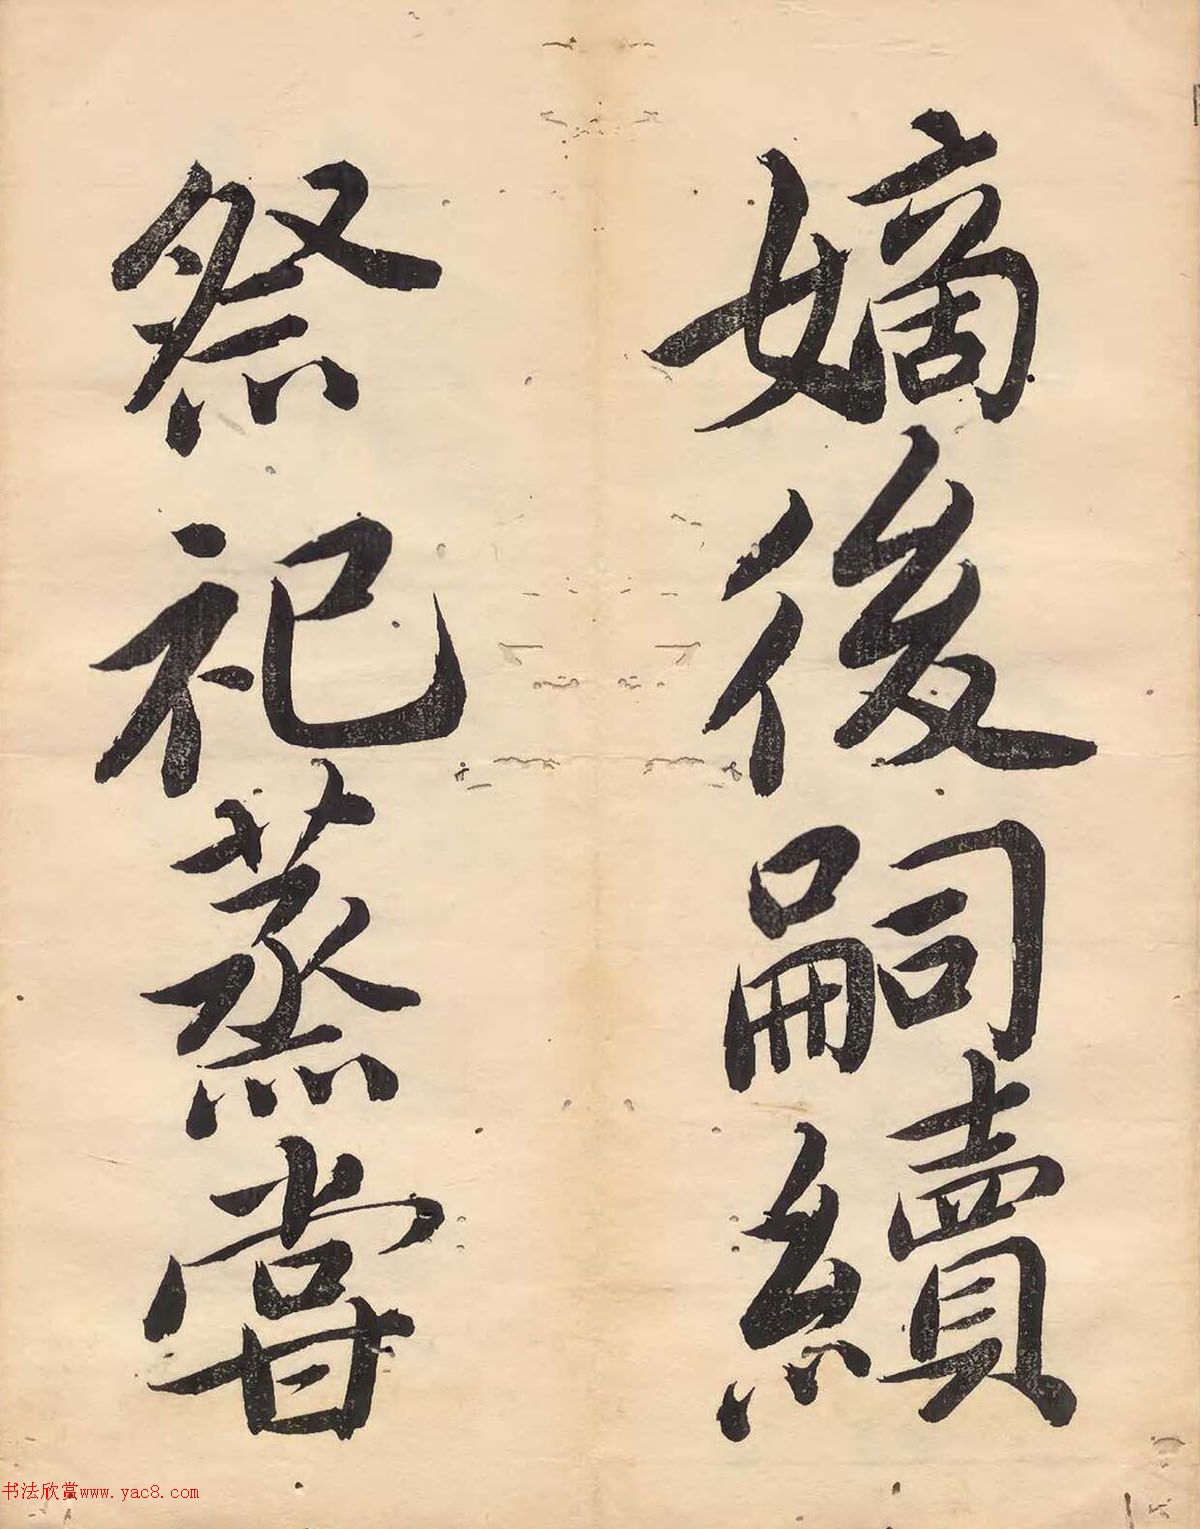 嫡後嗣續
祭祀蒸甞
书法欣赏www.yac8.com